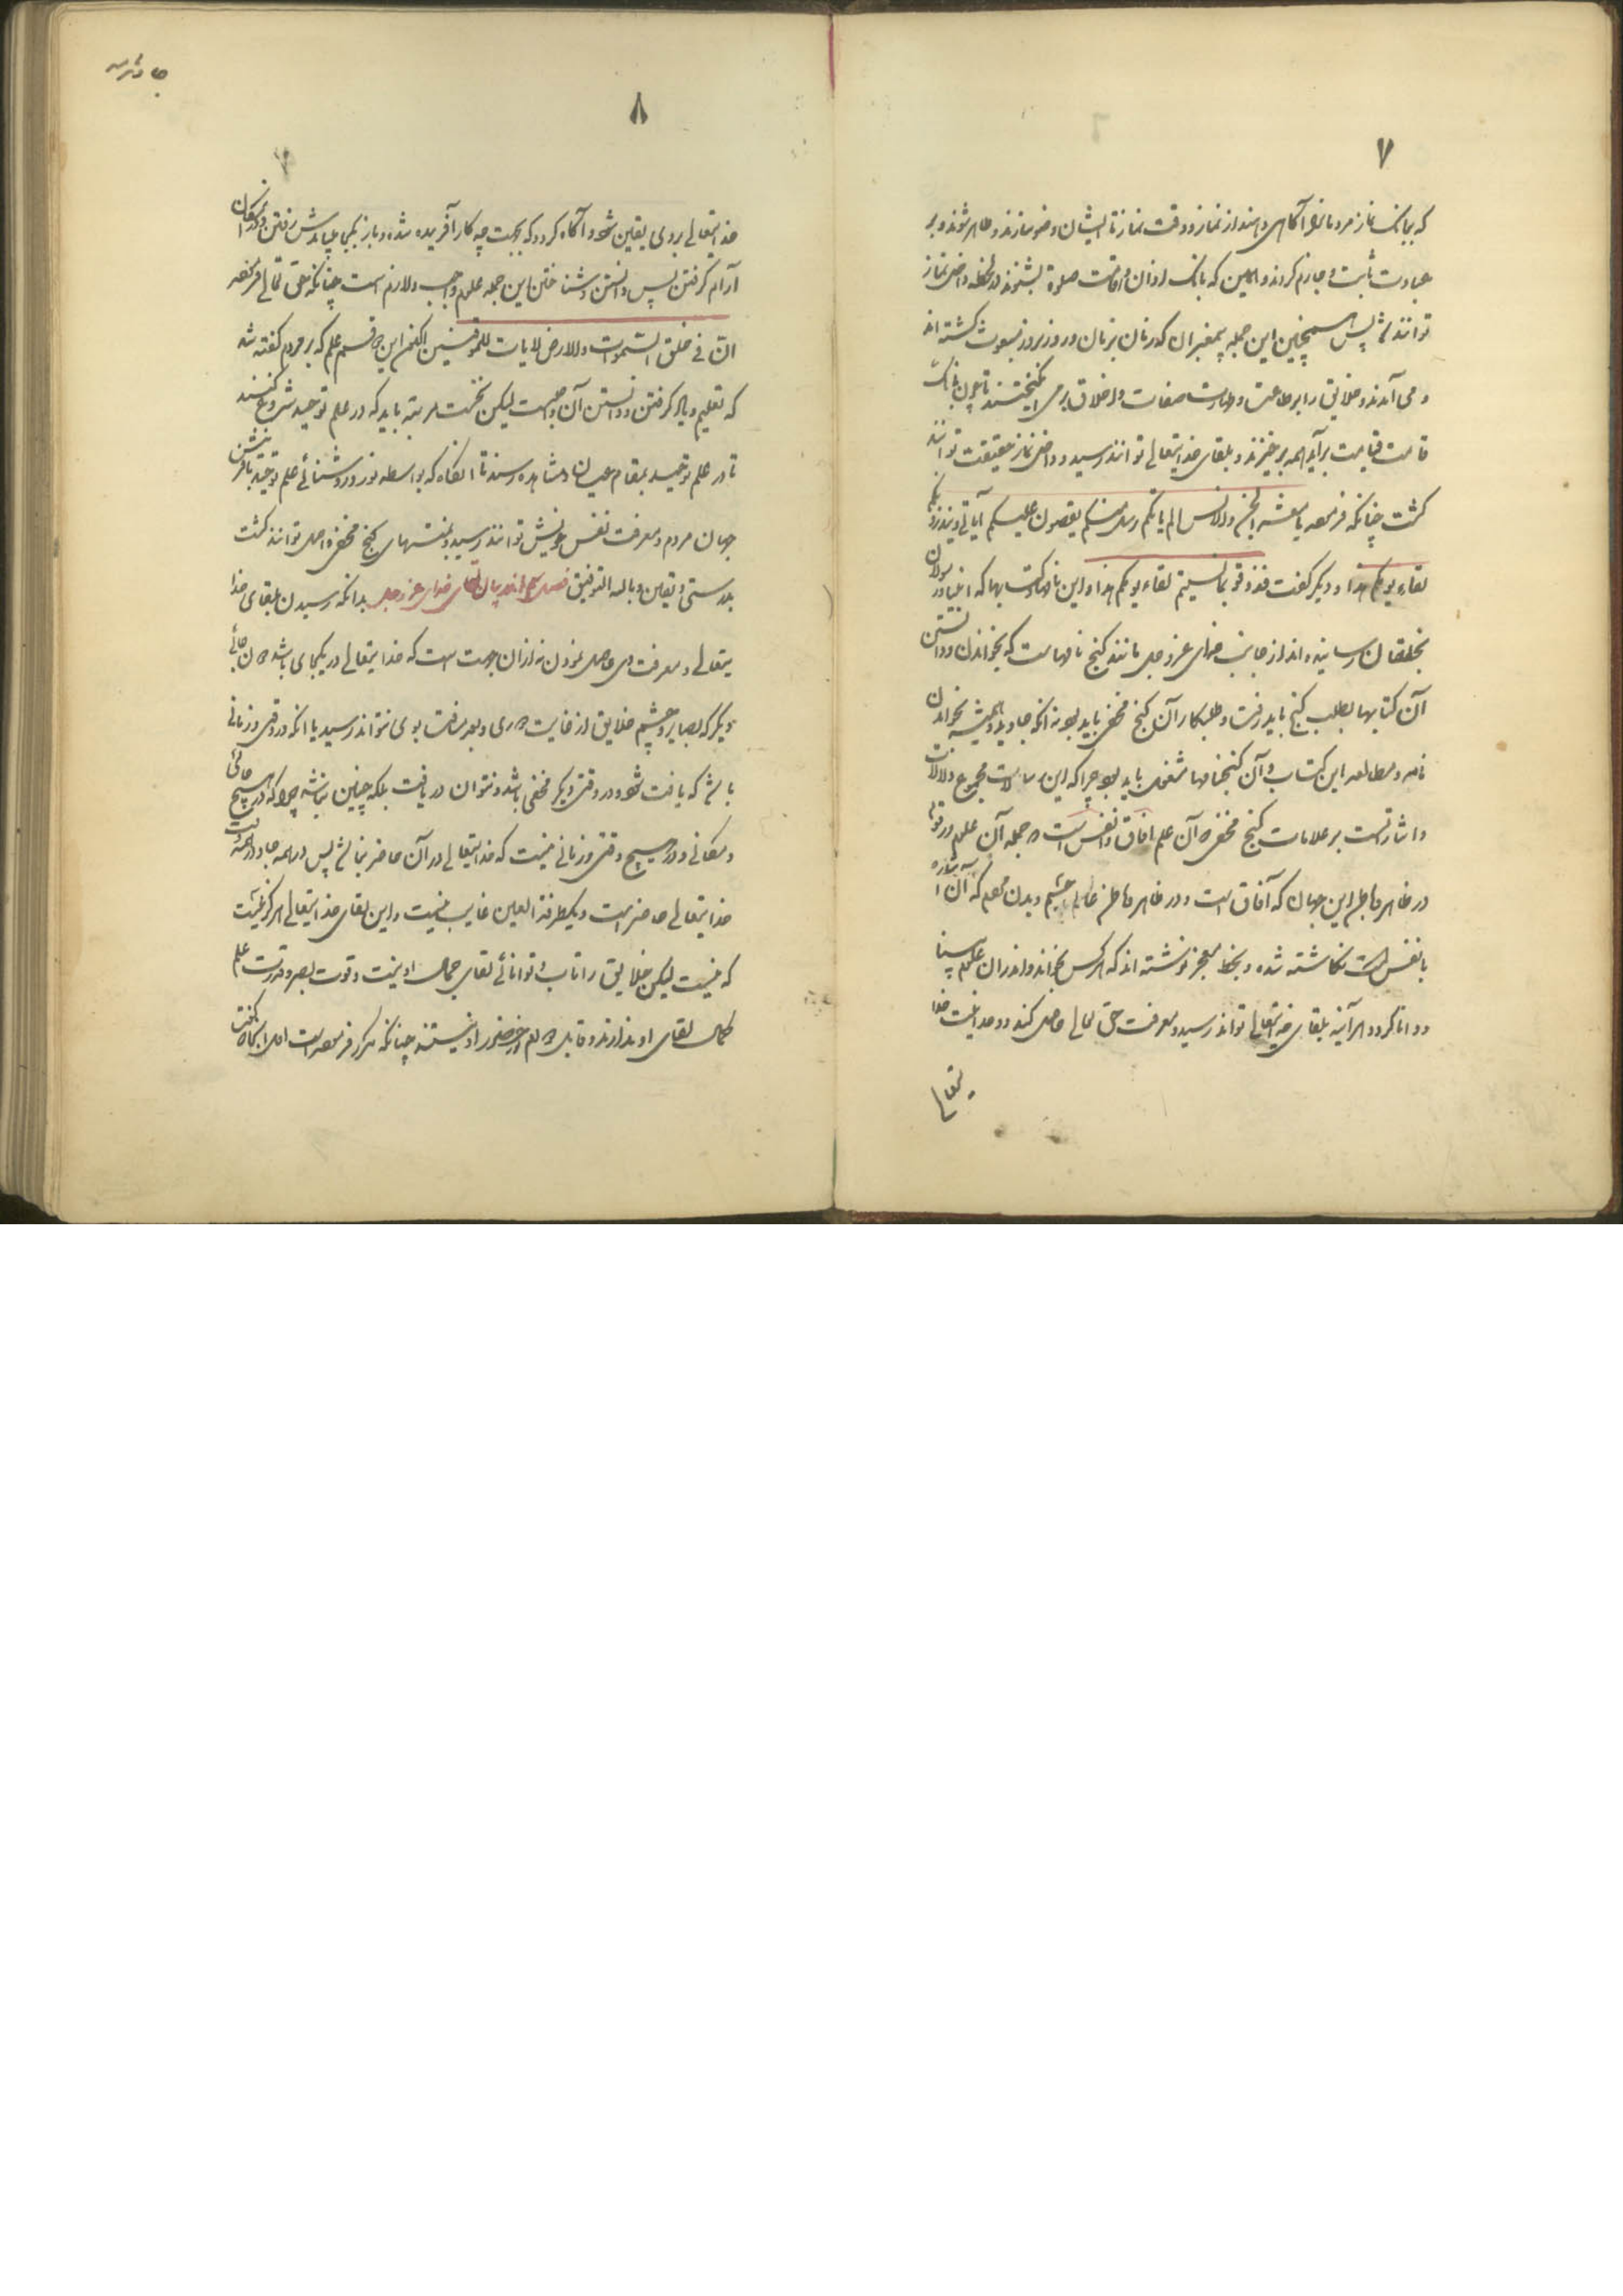 ۷
که ببانک نماز مردمانرا آگاهی دهند از نماز و وقت نماز تا ایشان وضو سازند و طاهر شوند و بر
عبادت ثابت و جازم گردند و همین که بانک اذان و اقامت صلوة بشنوند در لحظه داخل نماز
توانند شد پس همچنین این جمله پیغمبران که زمان بزمان و روز بروز مبعوث گشته اند
و می آمدند و خلایق را بر طاعت و طهارت صفات و اخلاق بر می انگیختند تا چون بانگ
قامت قیامت برآید همه برخیزند و بلقای خدایتعالی توانند رسید و داخل نماز حقیقت توانند
گشت چنانکه فرمود یا معشر الجن و الانس الم یاتکم رسل منکم یقصون علیکم آیاتی و ینذرونکم
لقاء یومکم هذا و دیگر گفت فذوقوا بما نسیتم لقاء یومکم هذا و این نامها و کتابها که انبیا و رسولان
بخلقان رسانیده اند از جانب خدای عز و جل مانند گنج نامهاست که بخواندن و دانستن
آن کتابها بطلب گنج باید رفت و طلبکار آن گنج مخفی باید بود نه آنکه جاوید و همیشه بخواندن
نامه و مطالعه این کتاب و آن گنجنامها مشغول باید بود چرا که این رسالات مجموع دلالات
و اشاراتست بر علامات گنج مخفی و آن علم آفاق و انفس است و جمله آن علوم در قوتها
در ظاهر و باطن این جهان که آفاق است و در ظاهر و باطن عالم جسم و بدن مردم که آن اشاره
بانفس است نگاشته شده و بخط معجز نوشته اند که هر کس بخواند و اندران علوم بینا
و دانا گردد هر آینه بلقای خدایتعالی تواند رسید و معرفت حق تعالی حاصل کند و وحدانیت خدا
یتعالی
۸
خدایتعالی بروی یقین شود و آگاه گردد که بجهت چه کار آفریده شده و باز بکجا میباید رفتن و در کدام مکان
آرام گرفتن پس دانستن و شناختن این جمله علوم واجب و لازم است چنانکه حق تعالی فرمود
ان فی خلق السموات والارض لایات للموقنین اکنون این دو قسم علم که بر مردم گفته شد
که تعلیم و یاد گرفتن و دانستن آن واجبست لیکن نخست مرتبه باید که در علم توحید شروع کنند
تا در علم توحید بمقام عیان و مشاهده رسند تا آنگاه که بواسطه نور و روشنائی علم توحید بآفرینش
جهان مردم و معرفت نفس خویش توانند رسید و بنعمتهای گنج مخفی واصل توانند گشت
بدرستی و یقین و بالله التوفیق فصل اندر بیان لقای خدای عز و جل بدانکه رسیدن بلقای خدا
یتعالی و معرفت وی حاصل نمودن نه از آن جهت است که خدایتعالی در یکجای باشد و ان جائی
دیگر که بصایر و چشم خلایق از غایت دوری و بعد مسافت بوی نتواند رسید یا آنکه در وقتی و زمانی
باشد که یافت شود و در وقتی دیگر مخفی باشد و نتوان دریافت بلکه چنین نباشد چرا که در هیچ جائی
و مکانی و در هیچ وقتی و زمانی نیست که خدایتعالی در آن حاضر نباشد پس در همه جا و در همه وقت
خدایتعالی حاضر است و یکطرفة العین غایب نیست و این لقای خدایتعالی هرگز نیست
که نیست لیکن خلایق را تاب و توانائی لقای جمال او نیست و قوت بصر و قدرت علم
کمال لقای او ندارند و قابل حضور او نیستند چنانکه مکرر فرموده است